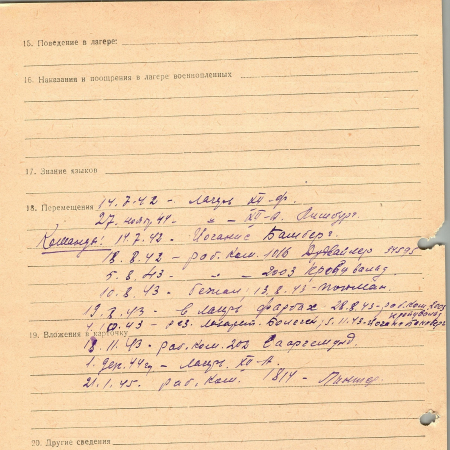 15. Поведение в лагере:
16. Наказания и поощрения в лагере военнопленных
17. Знание языков
18. Перемещения 14.7.42 - лагерь XII-Ф.
27. 44. - " - XII-А. Лимбург.
Команды: 14.7.42 - Иоганис Бамберг.
18.8.42 - раб. ком. 1016
5.8.43 - " - 2003
10.8.43 - бежал: 13.8.43 - пойман.
19.8.43 - в лагерь Форбах 28.8.43 - раб. ком. 2003
10.43 - рез. лазарет 5.11.43
19. Вложения в карточку
18.11.43 - раб. ком. 202 Сааргемюнд
1. дек. 44 г. - лагерь XII-А.
21.1.45. раб. ком. 1814 -
20. Другие сведения